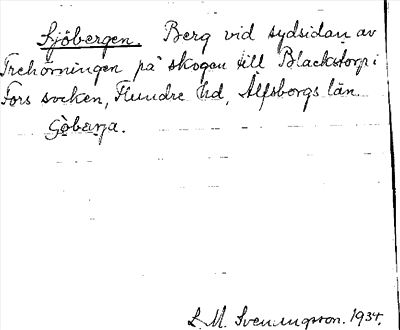 Sjöbergen. Berg vid sydsidan av
Trehörningen på skogen till Blackstorp i
Fors socken, Flundre hd, Älfsborgs län.
L. M. Svenungsson. 1934.